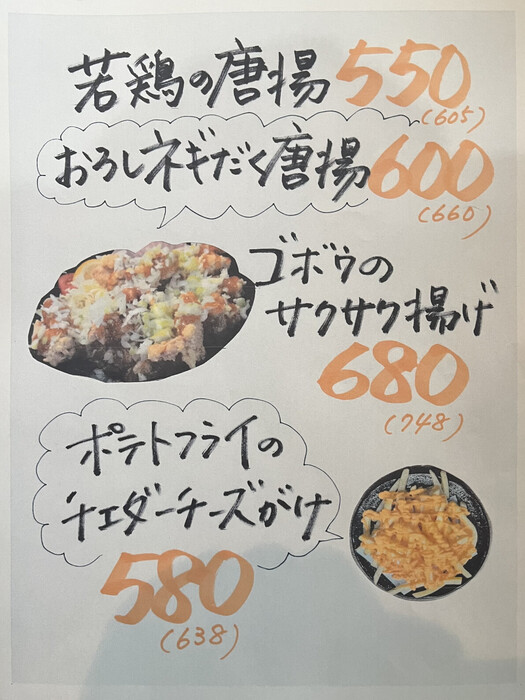 若鶏の唐揚 550
(605)
おろしネギだく唐揚 600
(660)
ゴボウの
サクサク揚げ
680
(748)
ポテトフライの
チェダーチーズがけ
580
(638)